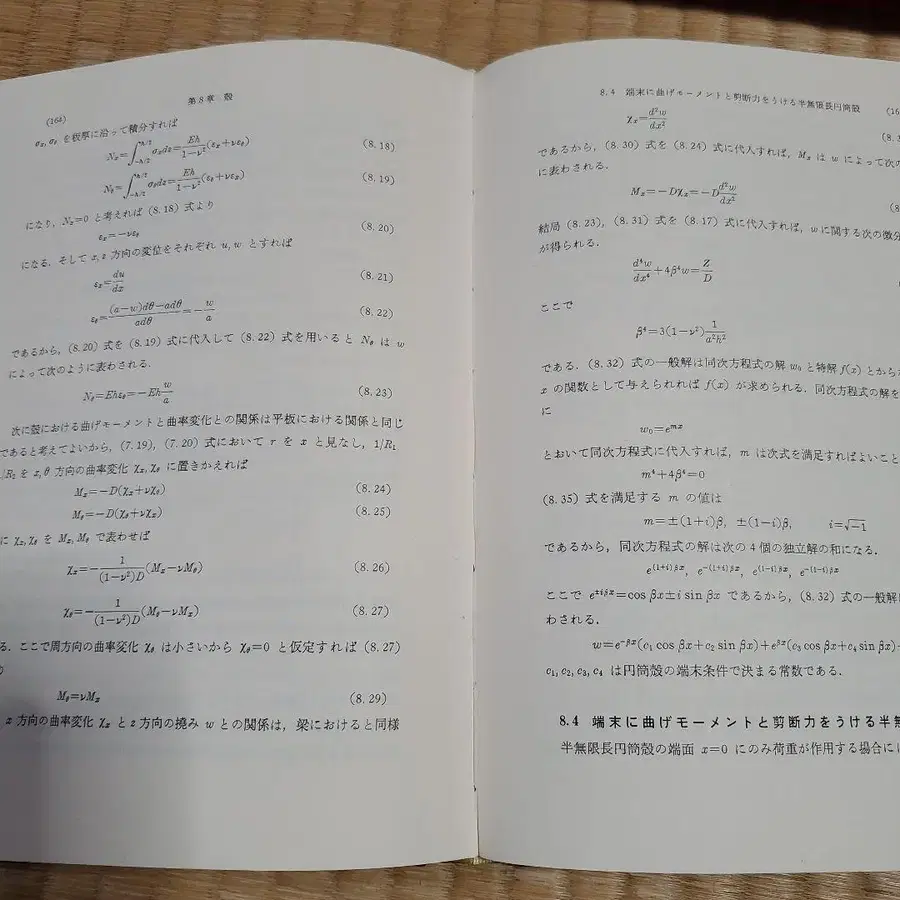 (164)
第8章 殻
σx, σθ を板厚に沿って積分すれば
Nx=∫_{-h/2}^{h/2} σxdz=Eh/(1-ν²)(εx+νεθ) (8.18)
Nθ=∫_{-h/2}^{h/2} σθdz=Eh/(1-ν²)(εθ+νεx) (8.19)
になり，Nx=0 と考えれば (8.18) 式より
εx=-νεθ (8.20)
になる．そして x, z 方向の変位をそれぞれ u, w とすれば
εx=du/dx (8.21)
εθ=((a-w)dθ-adθ)/adθ=-w/a (8.22)
であるから，(8.20) 式を (8.19) 式に代入して (8.22) 式を用いると Nθ は w
によって次のように表わされる．
Nθ=Ehεθ=-Eh w/a (8.23)
次に殻における曲げモーメントと曲率変化との関係は平板における関係と同じ
であると考えてよいから，(7.19), (7.20) 式において r を x と見なし，1/R₁
/R₂ を x, θ 方向の曲率変化 χx, χθ に置きかえれば
Mx=-D(χx+νχθ) (8.24)
Mθ=-D(χθ+νχx) (8.25)
に χx, χθ を Mx, Mθ で表わせば
χx=-1/((1-ν²)D)(Mx-νMθ) (8.26)
χθ=-1/((1-ν²)D)(Mθ-νMx) (8.27)
る．ここで周方向の曲率変化 χθ は小さいから χθ=0 と仮定すれば (8.27)
Mθ=νMx (8.29)
x 方向の曲率変化 χx と z 方向の撓み w との関係は，梁におけると同様
8.4 端末に曲げモーメントと剪断力をうける半無限長円筒殻 (16
χx=d²w/dx² (8.3
であるから，(8.30) 式を (8.24) 式に代入すれば，Mx は w によって次の
に表わされる．
Mx=-Dχx=-D d²w/dx² (8.
結局 (8.23), (8.31) 式を (8.17) 式に代入すれば，w に関する次の微分
が得られる．
d⁴w/dx⁴+4β⁴w=Z/D
ここで
β⁴=3(1-ν²)1/a²h²
である．(8.32) 式の一般解は同次方程式の解 w₀ と特解 f(x) とから
x の関数として与えられれば f(x) が求められる．同次方程式の解を
に
w₀=e^{mx}
とおいて同次方程式に代入すれば，m は次式を満足すればよいこと
m⁴+4β⁴=0
(8.35) 式を満足する m の値は
m=±(1+i)β, ±(1-i)β, i=√-1
であるから，同次方程式の解は次の 4 個の独立解の和になる．
e^{(1+i)βx}, e^{-(1+i)βx}, e^{(1-i)βx}, e^{-(1-i)βx}
ここで e^{±iβx}=cos βx±i sin βx であるから，(8.32) 式の一般解
わされる．
w=e^{-βx}(c₁ cos βx+c₂ sin βx)+e^{βx}(c₃ cos βx+c₄ sin βx)+
c₁, c₂, c₃, c₄ は円筒殻の端末条件で決まる常数である．
8.4 端末に曲げモーメントと剪断力をうける半無
半無限長円筒殻の端面 x=0 にのみ荷重が作用する場合に